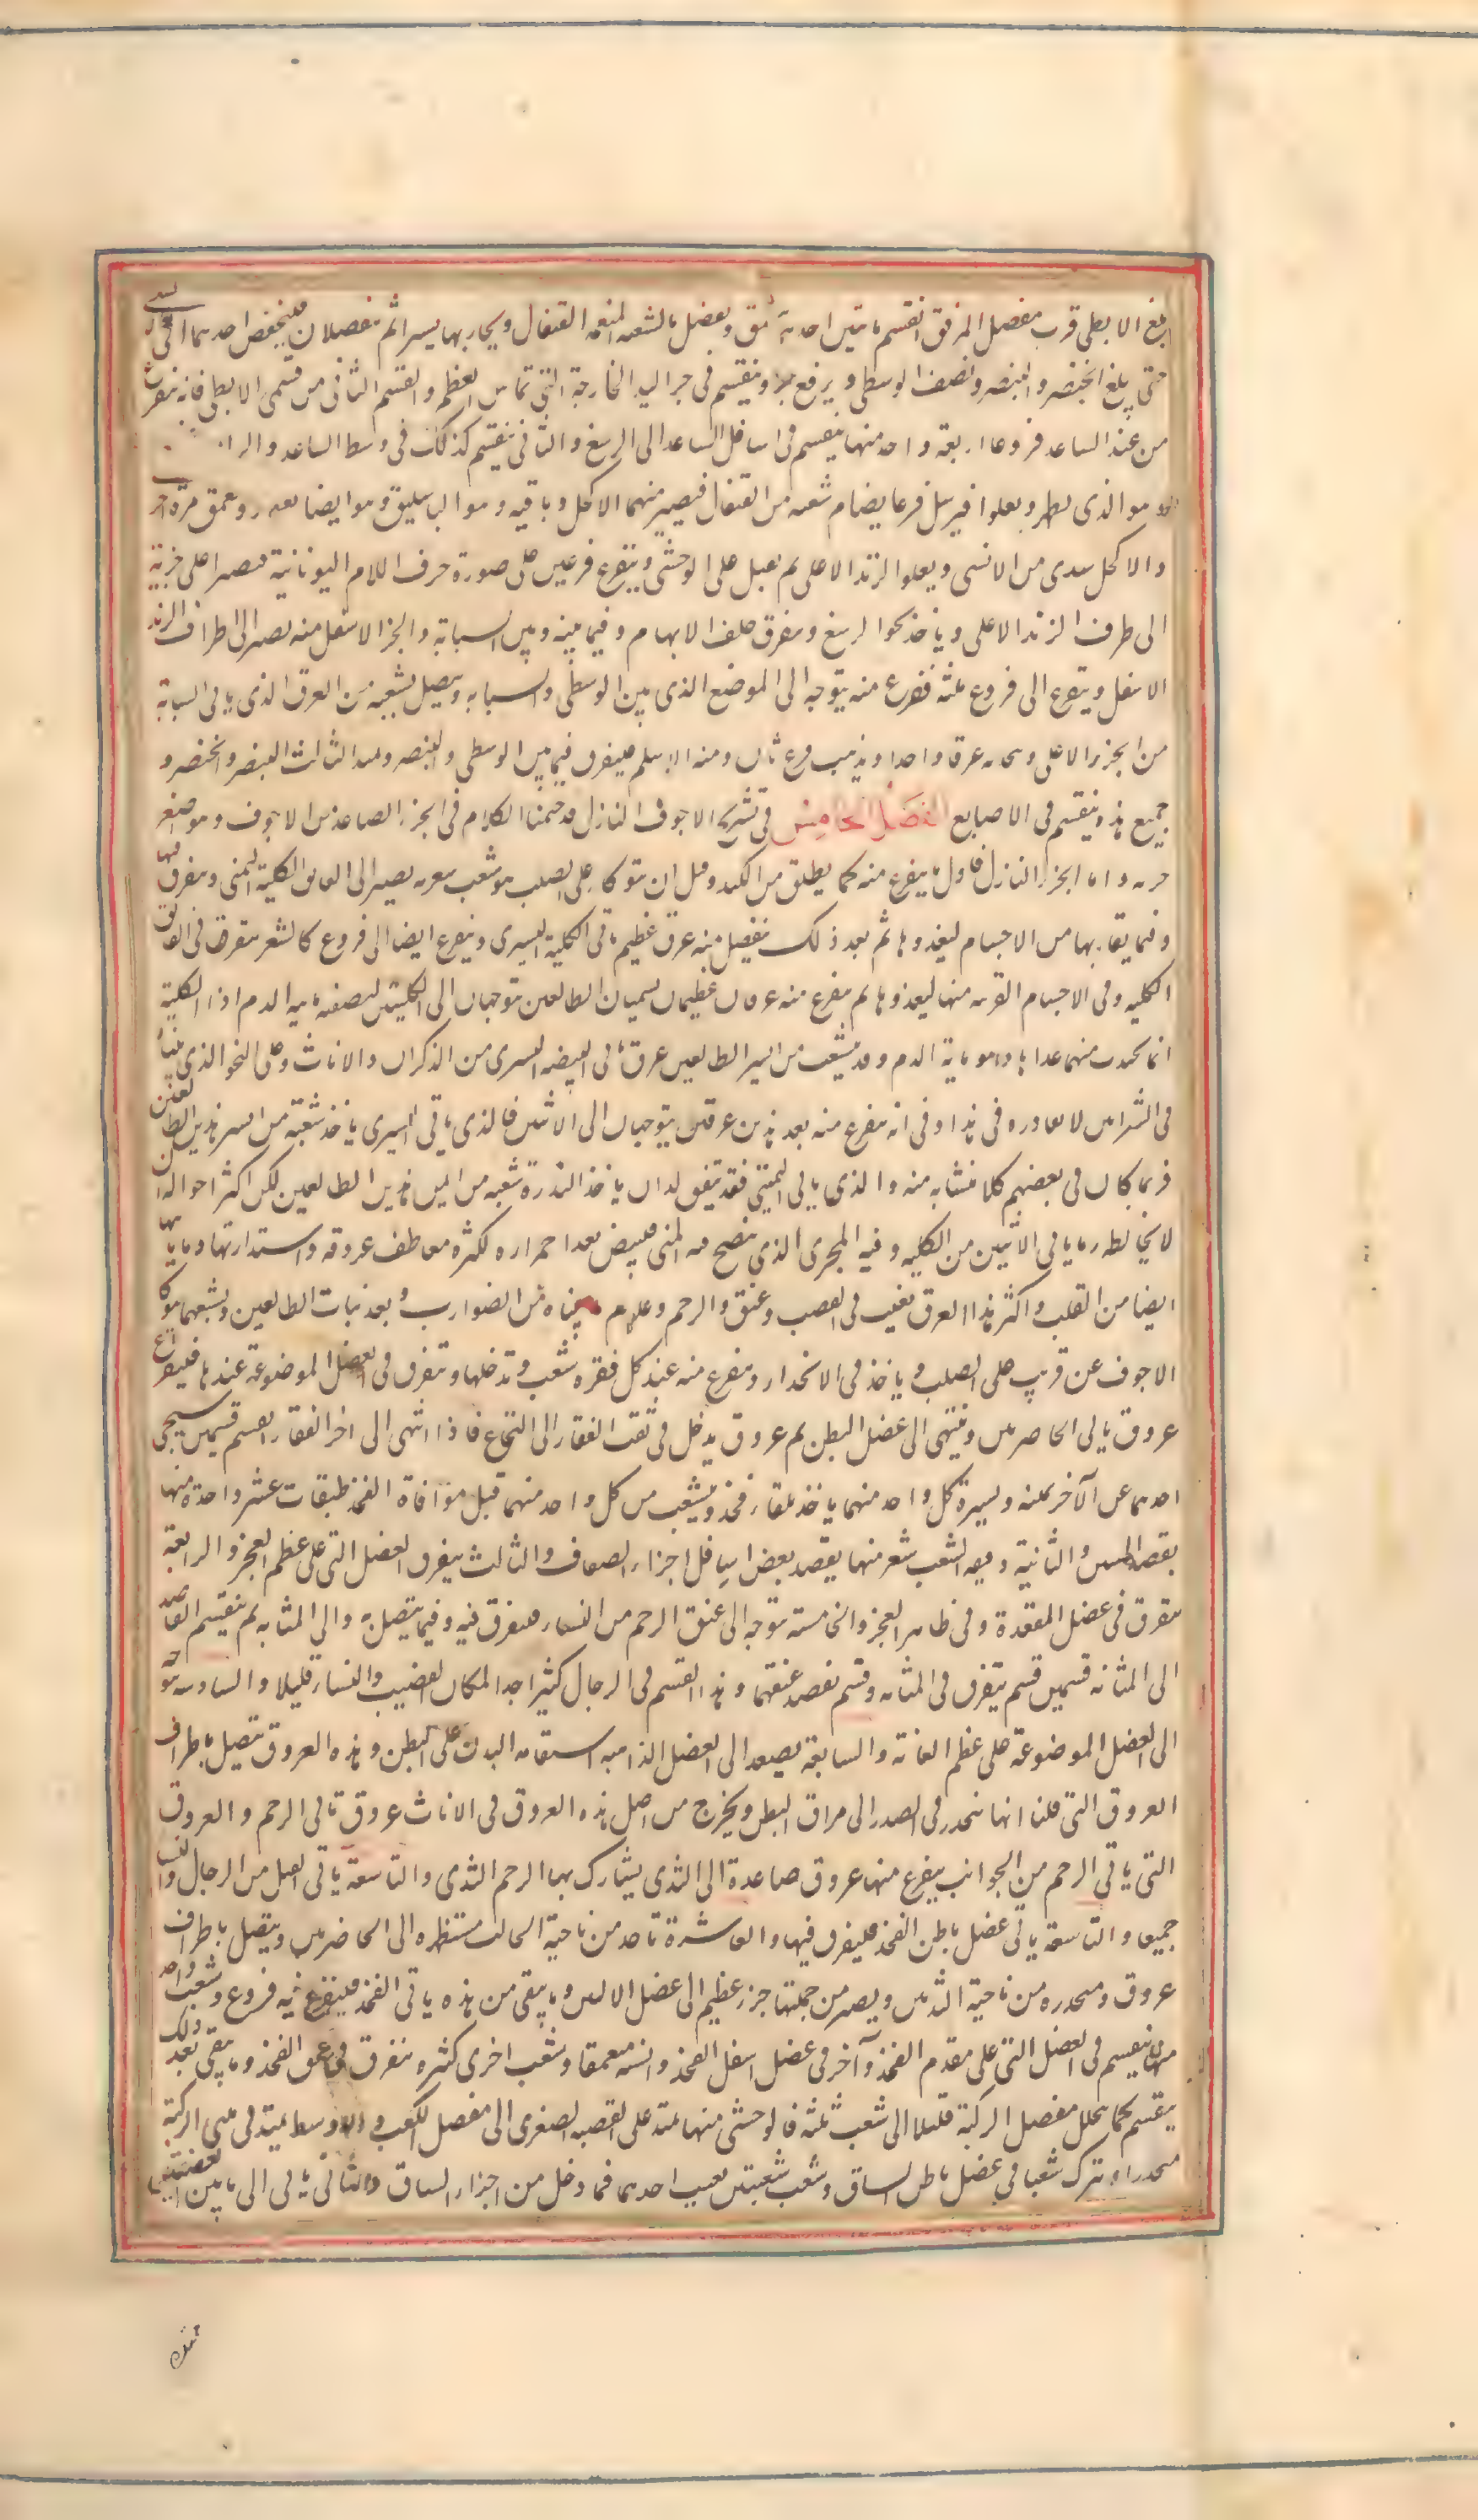 بلغ الابطى قرب مفصل المرفق انقسم باثنين احد يتعمق ويتصل بالشعبه المتعمقه القيفال ويجاريها يسيرا ثم ينفصلان فينخفض احدهما الى
حتى يبلغ الخنصر والبنصر ونصف الوسطى و يرفع جزء وينقسم فى اجزاء اليد الخارجة التى تماس العظم والقسم الثانى من قسمى الابطى فانه يتفرع
من عند الساعد فروعا اربعة واحد منها ينقسم فى اسافل الساعد الى الرسغ والثانى ينقسم كذلك فى وسط الساعد والرا
هو الذى يظهر ويعلوا فيرسل فرعا يضام شعبه من القيفال فيصير منهما الاكحل وباقيه وهو الباسليق وهو ايضا يغور ويعمق مرة اخر
والاكحل يبتدى من الانسى ويعلوا الزند الاعلى ثم يقبل على الوحشى ويتفرع فرعين على صورة حرف اللام اليونانية فيصير اعلى جزئيه
الى طرف الزند الاعلى وياخذ نحوا لرسغ ويتفرق خلف الابهام وفيما بينه وبين السبابة والجزء الاسفل منه يصير الى طرف الزند
الاسفل ويتفرع الى فروع ثلثه ففرع منه يتوجه الى الموضع الذى بين الوسطى والسبابه ويتصل بشعبه من العرق الذى ياتى السبابة
من الجزء الاعلى ويتحد به عرقا واحدا ويذهب فرع ثان ومنه الاسيلم فيتفرق فيما بين الوسطى والبنصر ويمتد الثالث البنصر والخنصر و
جميع هذه ينقسم فى الاصابع الفصل الخامس فى تشريح الاجوف النازل قد ختمنا الكلام فى الجزء الصاعد من الاجوف وهو اصغر
جزئيه واما الجزء النازل فاول ما يتفرع منه كما يطلع من الكبد وقبل ان يتوكا على الصلب هو شعب شعريه يصير الى لفايف الكلية اليمنى ويتفرق فيها
وفيما يقاربها من الاجسام ليغذوها ثم بعد ذلك ينفصل منه عرق عظيم ياتى الكلية اليسرى ويتفرع ايضا الى فروع كالشعر يتفرق فى لفايف
الكليه وفى الاجسام القريبه منها ليغذوها ثم يتفرع منه عرقان عظيمان يسميان الطالعين يتوجهان الى الكليتين لتصفيه مائيه الدم اذ الكلية
انما تجتذب منهما غذاها وهو مائية الدم وقد يتشعب من ايسر الطالعين عرق ياتى البيضه اليسرى من الذكران والاناث وعلى النحو الذى بيناه
فى الشرايين لا يغادره فى هذا وفى انه يتفرع منه بعد هذين عرقان يتوجهان الى الانثيين فالذى ياتى اليسرى ياخذ شعبة من ايسر هذين الطالعين
فربما كان فى بعضهم كلا منشاه منه والذى ياتى اليمنى فقد يتفق له ان ياخذ النذرة شعبه من ايمن هذين الطالعين لكن اكثر احواله ان
لا يخالطه وما ياتى الانثيين من الكليه وفيه المجرى الذى ينضج فيه المنى فيبيض بعد احمراره لكثره معاطف عروقه واستدارتها وما ياتيها
ايضا من الصلب واكثر هذا العرق يغيب فى القضيب وعنق والرحم وعلى ما بيناه من الضوارب وبعد نبات الطالعين وشعبهما يتوكا
الاجوف عن قريب على الصلب وياخذ فى الانحدار ويتفرع منه عند كل فقره شعب وتدخلها وتتفرق فى العضل الموضوعة عندها فيتفرع
عروق ياتى الخاصرتين وينتهى الى عضل البطن ثم عروق يدخل فى ثقب الفقار الى النخاع فاذا انتهى الى اخر الفقار انقسم قسمين يتنحى
احدهما عن الآخر يمنه ويسرة كل واحد منهما ياخذ تلقاء فخذ ويتشعب من كل واحد منهما قبل موافاة الفخذ طبقات عشر واحدة منها
يقصد المتنين والثانية دقيقه الشعب شعر منها يقصد بعض اسافل اجزاء الصفاق والثالث يتفرق العضل التى على عظم العجز والرابعة
يتفرق فى عضل المقعدة وفى ظاهر العجز والخامسة يتوجه الى عنق الرحم من النساء فيتفرق فيه وفيما يتصل به والى المثانه ثم ينقسم القاصد
الى المثانه قسمين قسم يتفرق فى المثانه وقسم يقصد عنقها وهذا القسم فى الرجال كثير اجدا لمكان القضيب والنساء قليلا والسادسه يتوجه
الى العضل الموضوعة على عظم العانة والسابعة يصعد الى العضل الذاهبه استقامه البدن على البطن وهذه العروق يتصل باطراف
العروق التى قلنا انها تنحدر فى الصدر الى مراق البطن ويخرج من اصل هذه العروق فى الاناث عروق تاتى الرحم والعروق
التى ياتى الرحم من الجوانب يتفرع منها عروق صاعدة الى الثدى يشارك بها الرحم الثدى والتاسعة ياتى القبل من الرجال والنسا
جميعا والتاسعة ياتى عضل باطن الفخذ فيتفرق فيها والعاشرة تاخذ من ناحية الحالب مستظهره الى الخاصرتين ويتصل باطراف
عروق ومنحدره من ناحية الثديين ويصير من جملتها جزء عظيم الى عضل الانثيين وما يبقى من هذه ياتى الفخذ فيتفرع فيه فروع وشعب واحد
منها ينقسم فى العضل التى على مقدم الفخذ وآخر فى عضل اسفل الفخذ وانسيه متعمقا وشعب اخرى كثيره تتفرق فى عمق الفخذ وما يبقى بعد ذلك
ينقسم كما يتخلل مفصل الركبة قليلا الى شعب ثلثه فالوحشى منها يمتد على القصبه الصغرى الى مفصل الكعب والاوسط يمتد فى مثنى الركبة
منحدرا ويترك شعبا فى عضل باطن الساق ويتشعب شعبتين يغيب احدهما فيما دخل من اجزاء الساق والثانى ياتى الى ما بين القصبتين